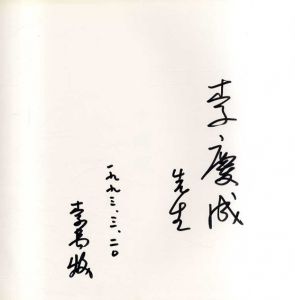 李慶成
先生
一九九三.三.二〇
李